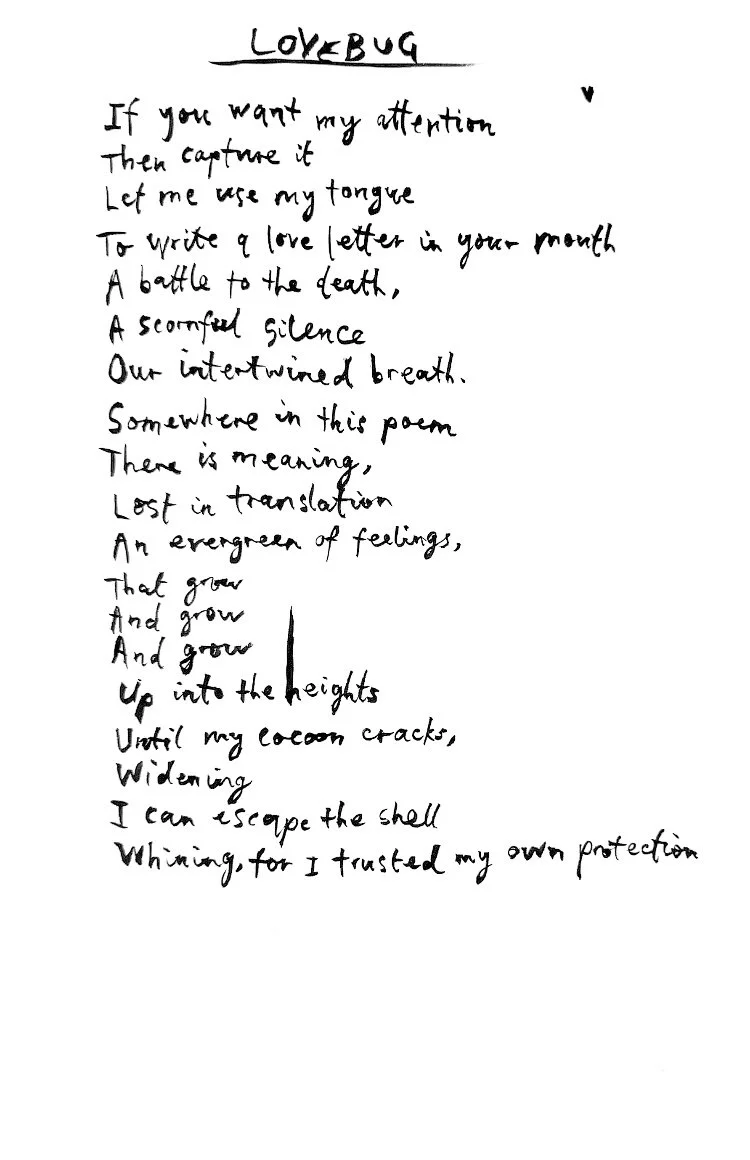 LOVEBUG
If you want my attention
Then capture it
Let me use my tongue
To write a love letter in your mouth
A battle to the death,
A scornful silence
Our intertwined breath.
Somewhere in this poem
There is meaning,
Lost in translation
An evergreen of feelings,
That grow
And grow
And grow
Up into the heights
Until my cocoon cracks,
Widening
I can escape the shell
Whining, for I trusted my own protection